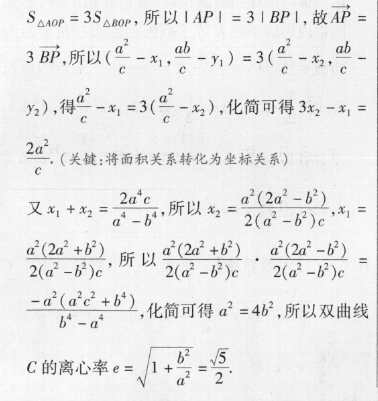 S△AOP = 3S△BOP, 所以 | AP | = 3 | BP |, 故 $\overrightarrow{AP}$ =
3 $\overrightarrow{BP}$, 所以 ($\frac{a^2}{c}$ − x₁, $\frac{ab}{c}$ − y₁) = 3($\frac{a^2}{c}$ − x₂, $\frac{ab}{c}$ −
y₂), 得 $\frac{a^2}{c}$ − x₁ = 3($\frac{a^2}{c}$ − x₂), 化简可得 3x₂ − x₁ =
$\frac{2a^2}{c}$. (关键:将面积关系转化为坐标关系)
又 x₁ + x₂ = $\frac{2a^4c}{a^4-b^4}$, 所以 x₂ = $\frac{a^2(2a^2-b^2)}{2(a^2-b^2)c}$, x₁ =
$\frac{a^2(2a^2+b^2)}{2(a^2-b^2)c}$, 所以 $\frac{a^2(2a^2+b^2)}{2(a^2-b^2)c}$ · $\frac{a^2(2a^2-b^2)}{2(a^2-b^2)c}$ =
$\frac{-a^2(a^2c^2+b^4)}{b^4-a^4}$, 化简可得 a² = 4b², 所以双曲线
C 的离心率 e = $\sqrt{1+\frac{b^2}{a^2}}$ = $\frac{\sqrt{5}}{2}$.